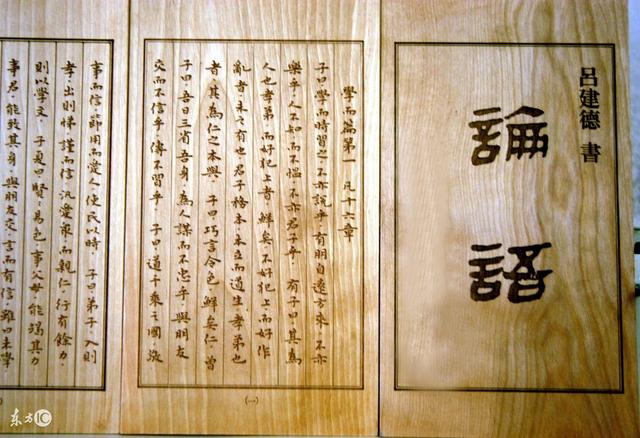 呂建德 書
論語
學而篇第一 凡十六章
子曰學而時習之不亦說乎 有朋自遠方來 不亦
樂乎 人不知而不慍 不亦君子乎 有子曰其為
人也孝弟而好犯上者 鮮矣 不好犯上而好作
亂者未之有也 君子務本 本立而道生 孝弟也
者 其為仁之本與 子曰巧言令色鮮矣仁 曾
子曰吾日三省吾身 為人謀而不忠乎 與朋友
交而不信乎 傳不習乎 子曰道千乘之國 敬
(一)
事而信 節用而愛人 使民以時 子曰弟子入則
孝 出則悌 謹而信 汎愛眾而親仁 行有餘力
則以學文 子夏曰賢〻易色 事父母 能竭其力
事君 能致其身 與朋友交 言而有信 雖曰未學
东方IC